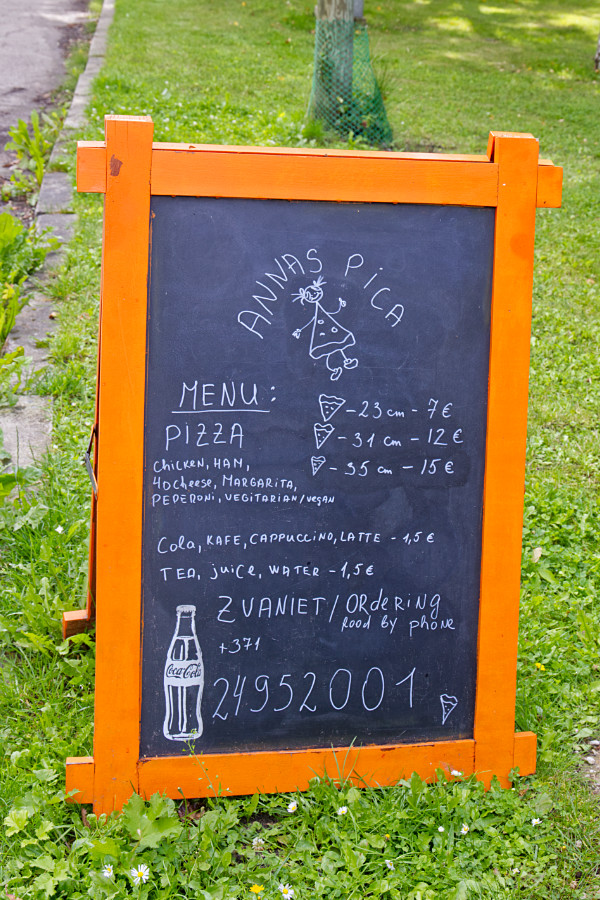 ANNAS PICA
MENU:
- 23 cm - 7 €
PIZZA
- 31 cm - 12 €
- 35 cm - 15 €
Chicken, HAM,
40cheese, MARGARITA,
PEPERONI, VEGITARIAN/vegan
Cola, KAFE, CAPPUCCINO, LATTE - 1,5 €
TEA, juice, WATER - 1,5 €
ZVANIET/ORdeRiNG
food by phone
+371
Coca-Cola
24952001